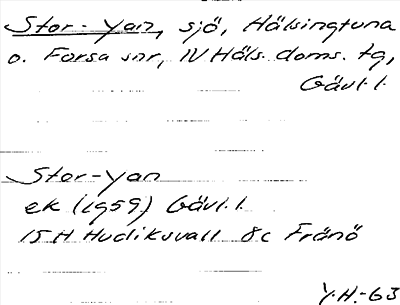 Stor-Yan, sjö, Hälsingtuna
o. Forsa snr, N Häls. doms. tg,
Gävl.l.
Stor-Yan
ek (1959) Gävl.l.
15H Hudiksvall 8c Fränö
Y.H.-63